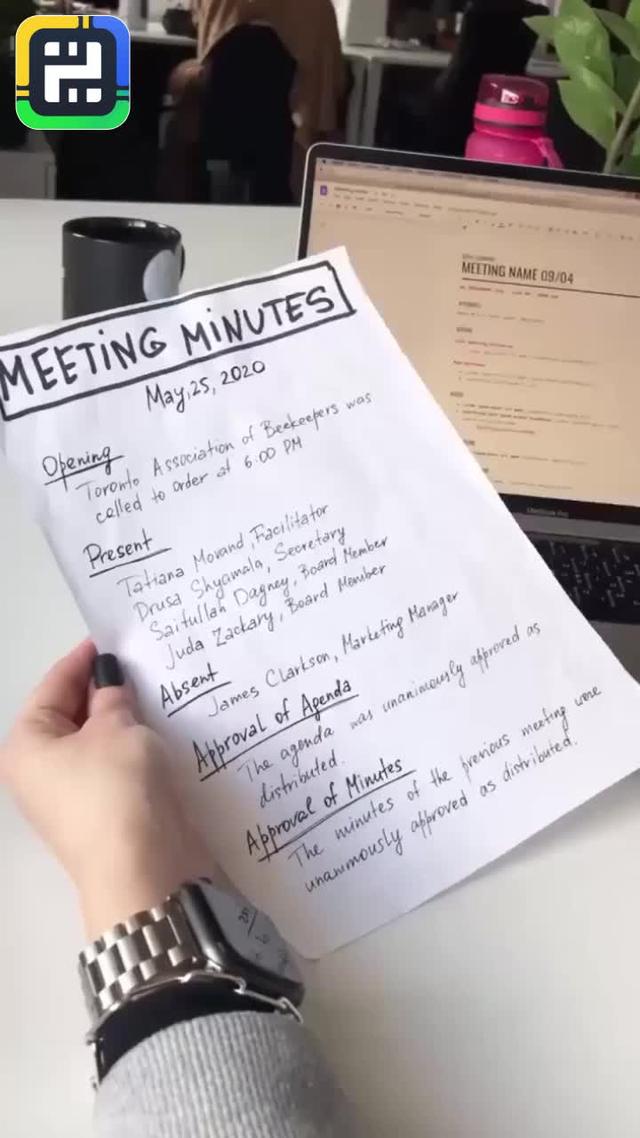 MEETING MINUTES
May, 25, 2020
Opening
Toronto Association of Beekeepers was
called to order at 6:00 PM
Present
Tatiana Morand, Facilitator
Drusa Shyamala, Secretary
Saifullah Dagney, Board Member
Juda Zackary, Board Member
Absent
James Clarkson, Marketing Manager
Approval of Agenda
The agenda was unanimously approved as
distributed.
Approval of Minutes
The minutes of the previous meeting were
unanimously approved as distributed.
MEETING NAME 09/04
MacBook Pro